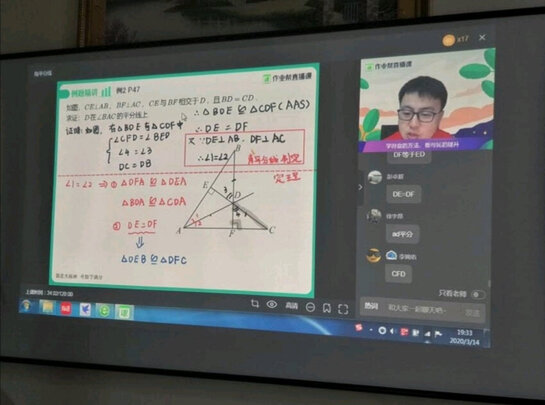 角平分线
例题精讲 例2 P47
作业帮直播课
如图，CE⊥AB，BF⊥AC，CE与BF相交于D，且BD=CD。
求证：D在∠BAC的平分线上
证明：如图，在△BDE与△CDF中
∠CFD=∠BED
∠4=∠3
DC=DB
∴△BDE≌△CDF(AAS)
∴DE=DF
又∵DE⊥AB，DF⊥AC
∴∠1=∠2
定理
∠1=∠2 ⇒ ① △DFA≌△DEA
△BDA≌△CDA
② DE=DF
⇓
△DEB≌△DFC
B
E
3
D
4
1
2
A
F
C
上课时间：34:02/120:00
高清
x17
作业帮直播课
DF等于ED
DE=DF
ad平分
CFD
只看老师
热词
和大家一起聊天吧
发送
19:33
2020/3/14